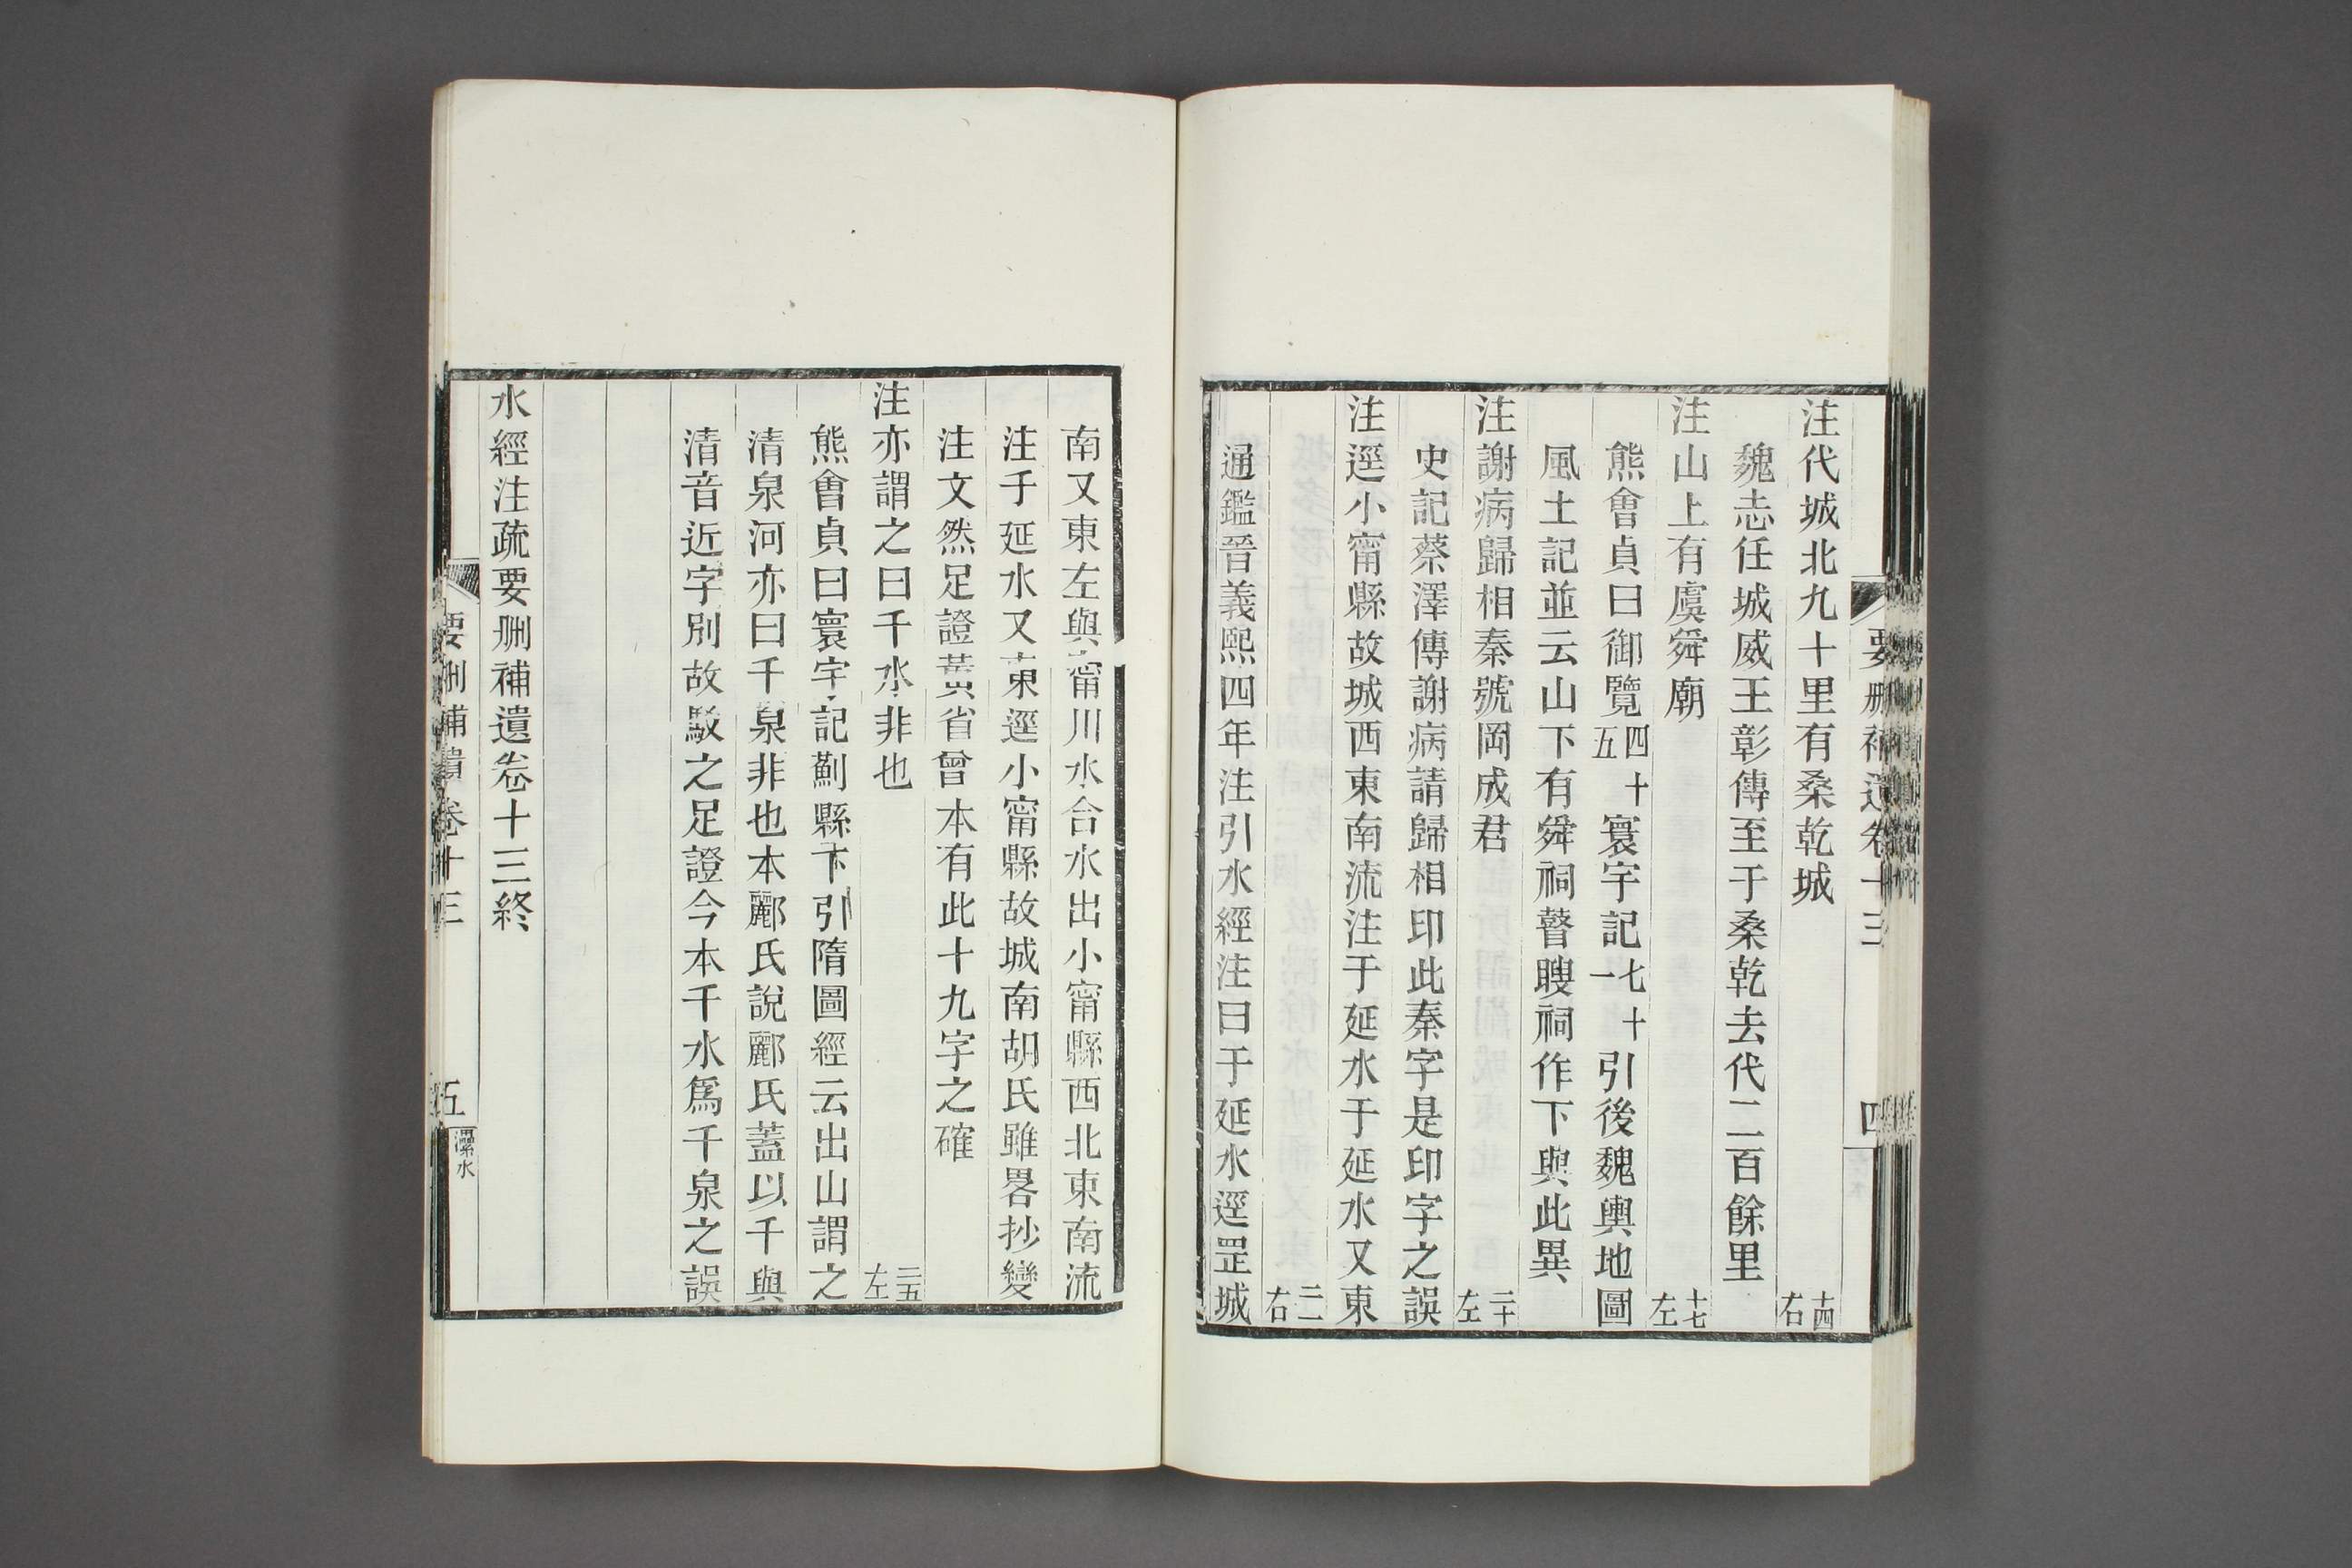 注代城北九十里有桑乾城 十四右
魏志任城威王彰傳至于桑乾去代二百餘里
注山上有虞舜廟 十七左
熊會貞曰御覽四十五寰宇記七十一引後魏輿地圖
風土記並云山下有舜祠瞽瞍祠作下與此異
注謝病歸相秦號岡成君 二十左
史記蔡澤傳謝病請歸相印此秦字是印字之誤
注逕小甯縣故城西東南流注于延水于延水又東
二一右
通鑑晉義熙四年注引水經注曰于延水逕罡城
南又東左與甯川水合水出小甯縣西北東南流
注于延水又東逕小甯縣故城南胡氏雖畧抄變
注文然足證黃省曾本有此十九字之確
注亦謂之曰千水非也 二五左
熊會貞曰寰宇記薊縣下引隋圖經云出山謂之
清泉河亦曰千泉非也本酈氏說酈氏蓋以千與
清音近字別故駁之足證今本千水爲千泉之誤
水經注疏要刪補遺卷十三終
要刪補遺卷十三
四
要刪補遺卷十三
五
㶟水